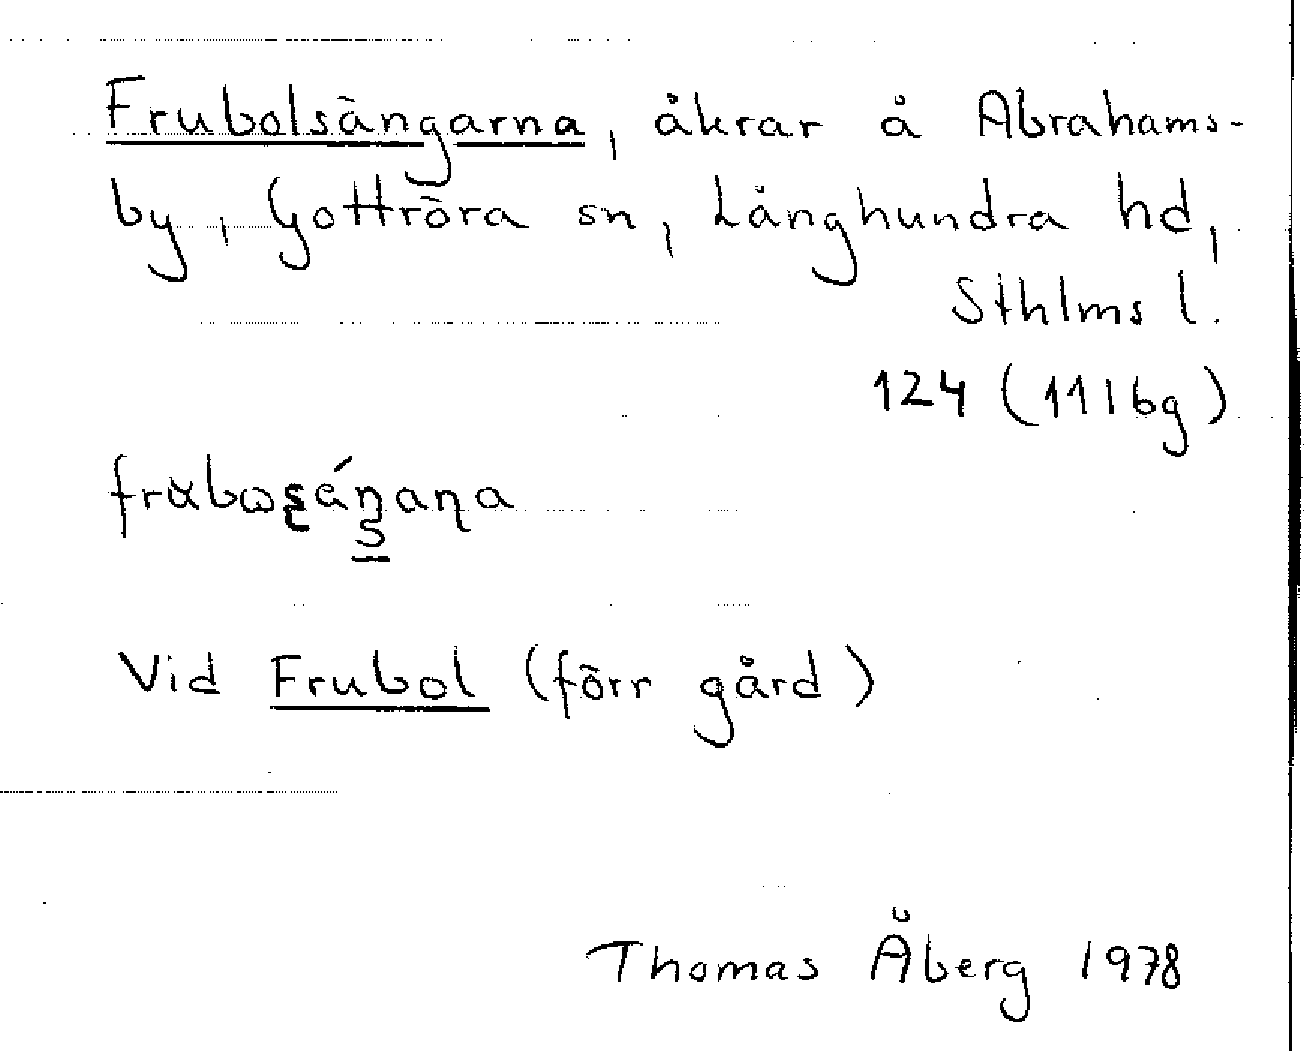 Frubolsängarna, åkrar å Abrahams-
by, Gottröra sn, Långhundra hd,
Sthlms l.
124 (11I6g)
Vid Frubol (förr gård)
Thomas Åberg 1978